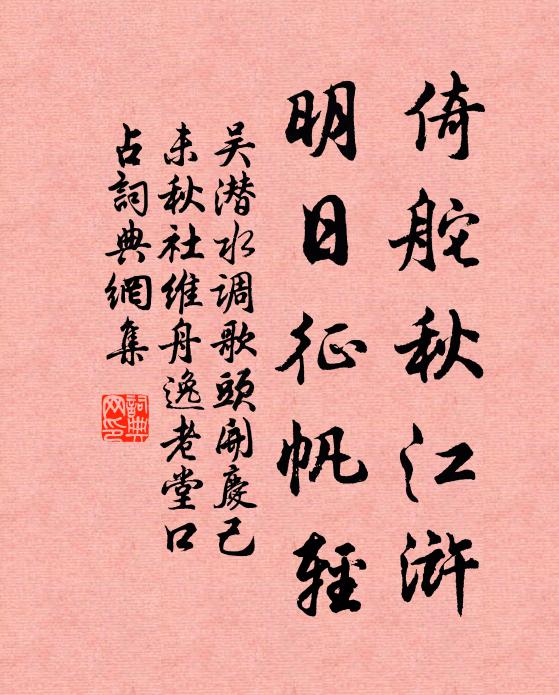 倚舵秋江浒
明日征帆輕
吴潜水调歌頭開慶己
未秋社維舟逸老堂口
占詞典網集
詞典
网印